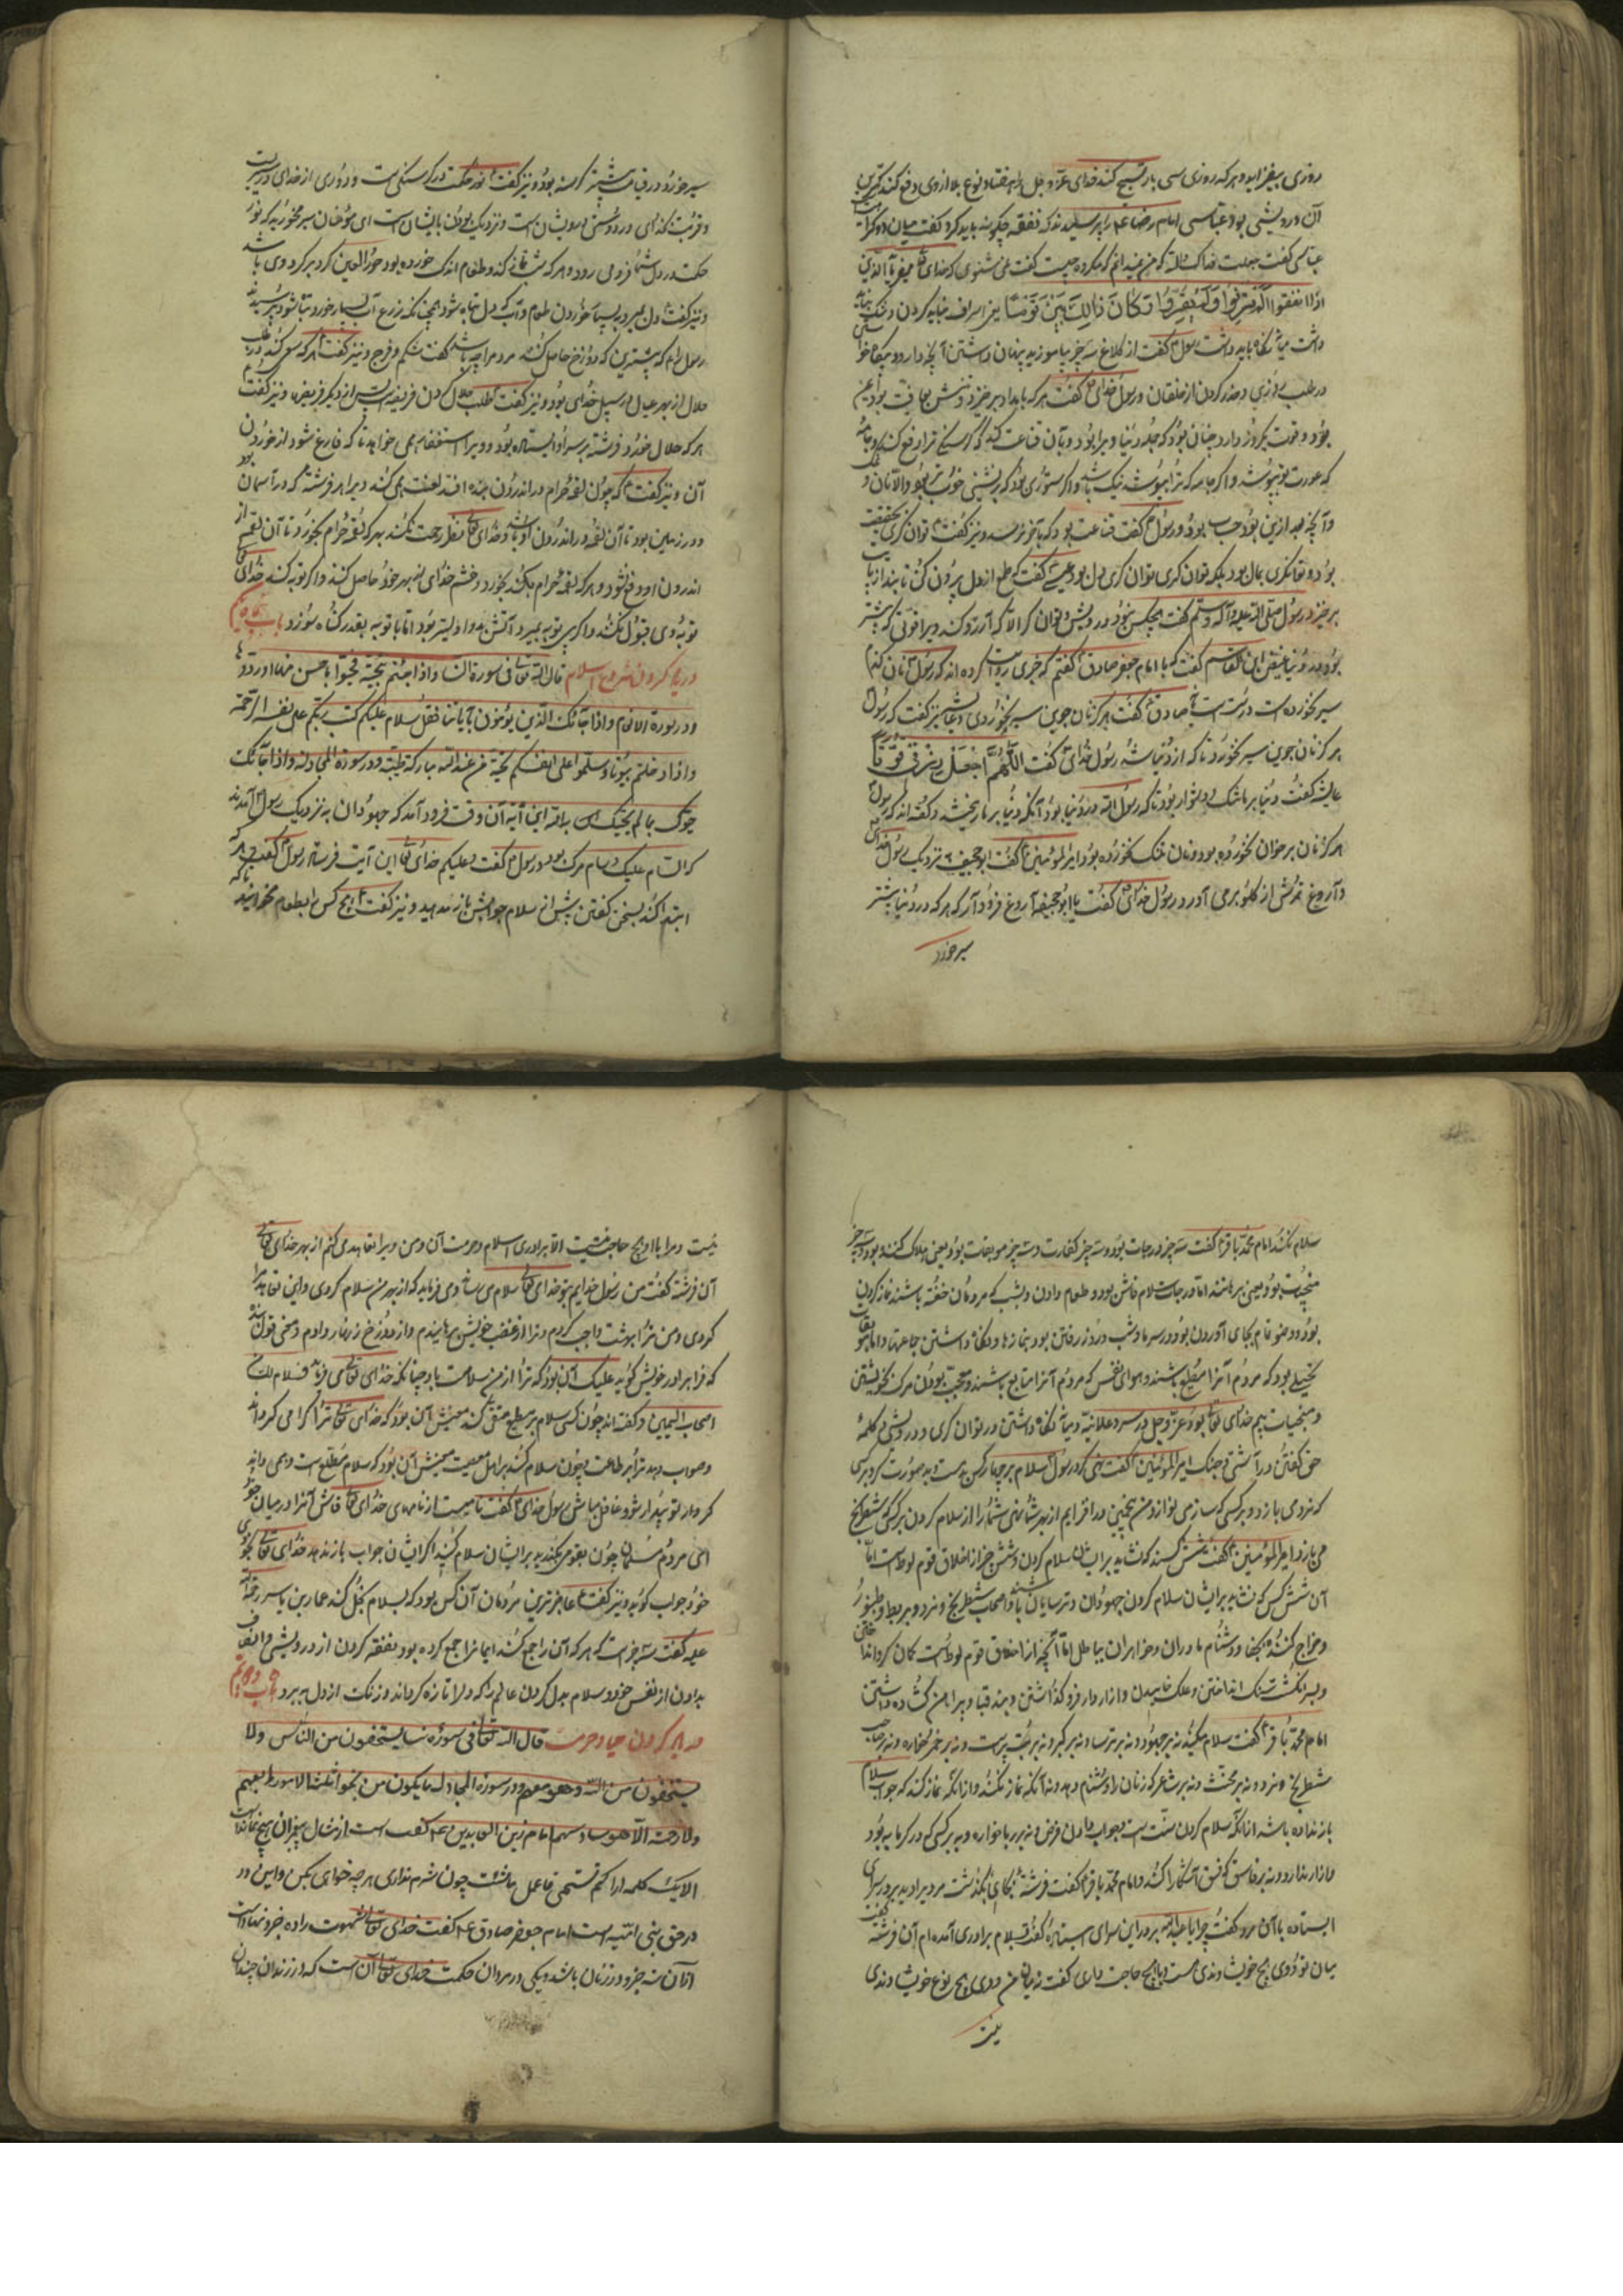 روزی بیفزاید و هر که روزی سی بار تسبیح کند خدای عزّ و جل از او هفتاد نوع بلا از وی دفع کند کمترین
آن درویشی بود عباسی امام رضا ع را پرسید که نفقه چگونه باید کرد گفت میان دو مکروه
عباسی گفت جعلت فداک والله که من نمیدانم که مکروه چیست گفت نمی شنوی که خدای میفرماید الذین
اذا انفقوا لم یسرفوا و لم یقتروا و کان بین ذلک قواما یعنی اسراف
داشت میانه نگاه باید داشت رسول گفت از کلاغ سه چیز بیاموزید پنهان داشتن آنچه دارد و پگاه خواستن
در طلب روزی و حذر کردن از خلقان و رسول خدای گفت هر که بامداد برخیزد و تنش بعافیت بود و ایمن
بود و قوت یکروز دارد چنان بود که جمله دنیا ویرا بود و بآن قناعت کند که گرسنگی ترا رفع کند و جامهٔ
که عورت تو بپوشد و اگر خانه که ترا بپوشد نیک باشد و اگر ستوری بود که برنشینی خوب بود و الا نان و
و آنچه بعد ازین بود حساب بود و رسول گفت قناعت بود که بآخر نرسد و نیز گفت توان گری بحقیقت
بود و توانگری بمال نبود بلکه توان گری توان گری دل بود عیسی گفت که طمع از دل بیرون کن تا بند از پایت
برخیزد رسول صلی الله علیه و آله و سلم گفت هیچکس نبود درویش و توان گر الا که آرزو کند ویرا قوتی که بیشتر
بود بد و دنیا عیص ابن القاسم گفت که با امام جعفر صادق گفتم که خبری روایت کرده اند که رسول از نان گندم
سیر نخورده است درست است صادق گفت هرگز نان جوین سیر نخوردی و عایشه نیز گفت که رسول
هرگز نان جوین سیر نخورد تا که از دنیا بشد رسول خدای گفت اللهم اجعل رزقی قوتا
عایشه گفت دنیا بر ما تنگ و دشوار بود تا که رسول الله در دنیا بود آنگه دنیا بر ما ریخته شد و گفته اند که رسول
هرگز نان بر خوان نخورده بود و نان خنک نخورده بود امیر المؤمنین گفت ابو جحیفه نزدیک رسول خدای
و آروغ ترش از گلو برمی آورد رسول خدای گفت یا ابو جحیفه آروغ فرو دار که هر که در دنیا بیشتر
سیر خورد
سیر خورد در قیامت بیشتر گرسنه بود و نیز گفت نور حکمت در گرسنگی است و دوری از خدای در سیریست
و قربت خدای در دوستی درویشان است و نزدیک بودن بایشان است ای مؤمنان سیر مخورید که نور
حکمت در دل شما فرومی رود و هر که شب نماز کند و طعام اندک خورده بود حور العین گرد بر گرد وی باشد
و نیز گفت دل بمیرد بسیار خوردن طعام و آب که دل تباه شود همچنانکه زرع آب بسیار خورد تباه شود پرسیدند
رسول را که بیشترین که دوزخ حاصل کند مردم را چه باشد گفت شکم و فرج و نیز گفت هر که سعی کند در طلب
حلال از بهر عیال در سبیل خدای بود و نیز گفت طلب حلال کردن فریضه است پس از دیگر فریضه و نیز گفت
هر که حلال خورد فرشته بر سر او ایستاده بود و ویرا استغفار همی خواهد تا که فارغ شود از خوردن
آن و نیز گفت که چون لقمهٔ حرام در اندرون بنده افتد لعنت همی کند ویرا هر فرشته که در آسمان
و در زمین بود تا آن لقمه در اندرون او باشد و خدای تعالی نظر رحمت نکند بهر که لقمهٔ حرام بخورد تا آن لقمه از
اندرون او دفع شود و هر که لقمهٔ حرام بخورد و خشم خدای از بهر خود حاصل کند و اگر توبه کند خدای تعالی
توبهٔ وی قبول کند و اگر بی توبه بمیرد آتش بدو اولیتر بود اما با توبه بقدر گناه سوزد باب
در پیدا کردن شرایع اسلام قال الله تعالی فی سورة النسا و اذا حییتم بتحیة فحیوا باحسن منها او ردوها
و در سورة الانعام و اذا جآئک الذین یؤمنون بآیاتنا فقل سلام علیکم کتب ربکم علی نفسه الرحمة
و اذا دخلتم بیوتا و سلموا علی انفسکم تحیة من عند الله مبارکة طیبة و در سورة المجادله و اذا جآئک
حیوک بما لم یحیک به الله این آیه آن وقت فرود آمد که جهودان به نزدیک رسول آمدند
که السام علیک و سام مرگ بود و رسول گفت و علیکم خدای تعالی این آیت فرستاد رسول گفت هر که
ابتدا کند بسخن گفتن پیش از سلام جوابش باز مدهید و نیز گفت هیچ کس را بطعام مخوانید تا که
سلام نکند امام محمد باقر گفت سه چیز درجات بود و سه چیز کفارت و سه چیز موبقات بود و یعنی هلاک کننده بود و سه چیز
منجیات بود و یعنی برهانند اما درجات سلام فاش بود و طعام دادن و بشب که مردمان خفته باشند نماز کردن
بود و وضو تمام بجای آوردن بود در سرما و شب و روز رفتن بود بنمازها و نگاه داشتن جماعتها و اما موبقات
بخیلی بود که مردم آنرا مطیع باشند و هوای نفس که مردم آنرا متابع باشند و معجب بودن مرد بخویشتن
و منجیات بیم خدای تعالی بود عز و جل در سر و علانیه و میانه نگاه داشتن در توان گری و درویشی و کلمهٔ
حق گفتن در آشتی و جنگ امیر المؤمنین گفت نهی کرد رسول سلام بر چهار کس مست و بد صورت گر و بر کسی
که نردمی بازد و بر کسی که سازمی نوازد و من پنجمین در افزایم از بهر شما نهی شما را از سلام کردن بر کسی که شطرنج
می بازد امیر المؤمنین گفت شش کسند که نشاید بر ایشان سلام کردن و شش چیز از اخلاق قوم لوط است اما
آن شش کس که نشاید بر ایشان سلام کردن جهودان و ترسایان باشند و اصحاب شطرنج و نرد و بربط و طنبور
و مزاح کننده بگفتار و دشنام مادران و خواهران بباطل اما آنچه از اخلاق قوم لوطست کمان گروهه
و بسر انگشت سنگ انداختن و علک خاییدن و ازار دراز فرو گذاشتن و بند قبا و پیراهن گشاده داشتن
امام محمد باقر گفت سلام مکنید نه بر جهود و نه بر ترسا و نه بر گبر و نه بر بت پرست و نه بر خمر خواره و نه بر صاحب
شطرنج و نرد و نه بر مخنث و نه بر شاعر که زنان را دشنام دهد و نه آنگه نماز کند و از آنکه نماز کند که جواب سلام
باز نداده باشد از آنکه سلام کردن سنت است و جواب دادن فرض و نه بر ربا خواره و نه بر کسی که در گرمابه بود
و ازار ندارد و نه بر فاسق که فسق آشکارا کند و امام محمد باقر گفت فرشتهٔ بجای بگذشت مرد را دید بر در سرای
ایستاده با آن مرد گفت چرا یا عبد الله بر در این سرای ایستاده گفت بسلام برادری آمده ام آن فرشته گفت
میان تو و وی هیچ خویشاوندی هست یا هیچ حاجت داری گفت نه میان من و وی هیچ نوع خویشاوندی
نیست
نیست و مرا با او هیچ حاجت نیست الا برادری اسلام و حرمت آن و من ویرا تعاهد می کنم از بهر خدای تعالی
آن فرشته گفت من رسول خدایم بتو خدای تعالی سلام می رساند و می فرماید که از بهر من سلام کردی و این تعاهد مرا
کردی و من ترا بهشت واجب کردم و ترا از غضب خویش برهانیدم و از دوزخ زینهار دادم و معنی قول
که فرا برادر خویش گوید علیک آن بود که ترا از من سلامت باد چنانکه خدای تعالی می فرماید فسلام لک من
اصحاب الیمین و گفته اند چون کسی سلام بر مطیع متقی کند معنیش آن بود که خدای تعالی ترا گرامی گرداند
و صواب دهد ترا بر طاعت و چون سلام کند بر اهل معصیت معنیش آن بود که سلام مطلع است و همی داند
کردار تو بیدار شو و غافل مباش رسول خدای گفت نامیست از نامهای خدای تعالی فاش آنرا در میان خود
ای مردم مسلمان چون بقومی بگذرید بر ایشان سلام کنید اگر ایشان جواب باز ندهند خدای تعالی بخودی
خود جواب گوید و نیز گفت عاجزترین مردمان آن کس بود که بسلام بخل کند عمار بن یاسر رحمة الله
علیه گفت سه چیز است که هر که آن را جمع کند ایمان را جمع کرده بود نفقه کردن از درویشی و انصاف
بدادن از نفس خود و سلام بذل کردن عالم را که دلها تازه گرداند و زنگ از دل ببرد باب
در پیدا کردن حیا و حرمت قال الله تعالی فی سورة نسا یستخفون من الناس و لا
یستخفون من الله و هو معهم و در سورة المجادله ما یکون من نجوی ثلثة الا هو رابعهم
و لا خمسة الا هو سادسهم امام زین العابدین ع گفت است از مثال پیغمبران هیچ نمانده است
الا یک کلمه اذا لم تستحی فاعمل ما شئت چون شرم نداری هر چه خواهی بکن و این در
در حق بنی امیه است امام جعفر صادق ع گفت خدای تعالی شهوت را ده جزو نهاده است
از آن نه جزو در زنان باشد و یکی در مردان حکمت خدای تعالی آن است که در زنان چندان